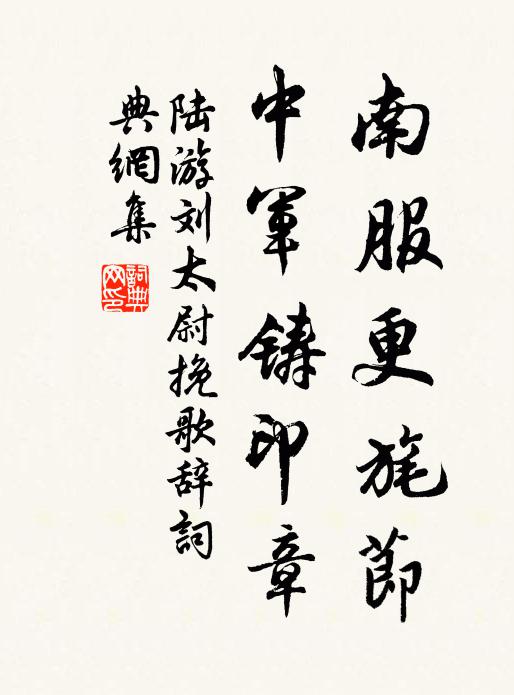 南服更旄節
中軍铸印章
陆游刘太尉挽歌辞詞
典網集
詞典網印